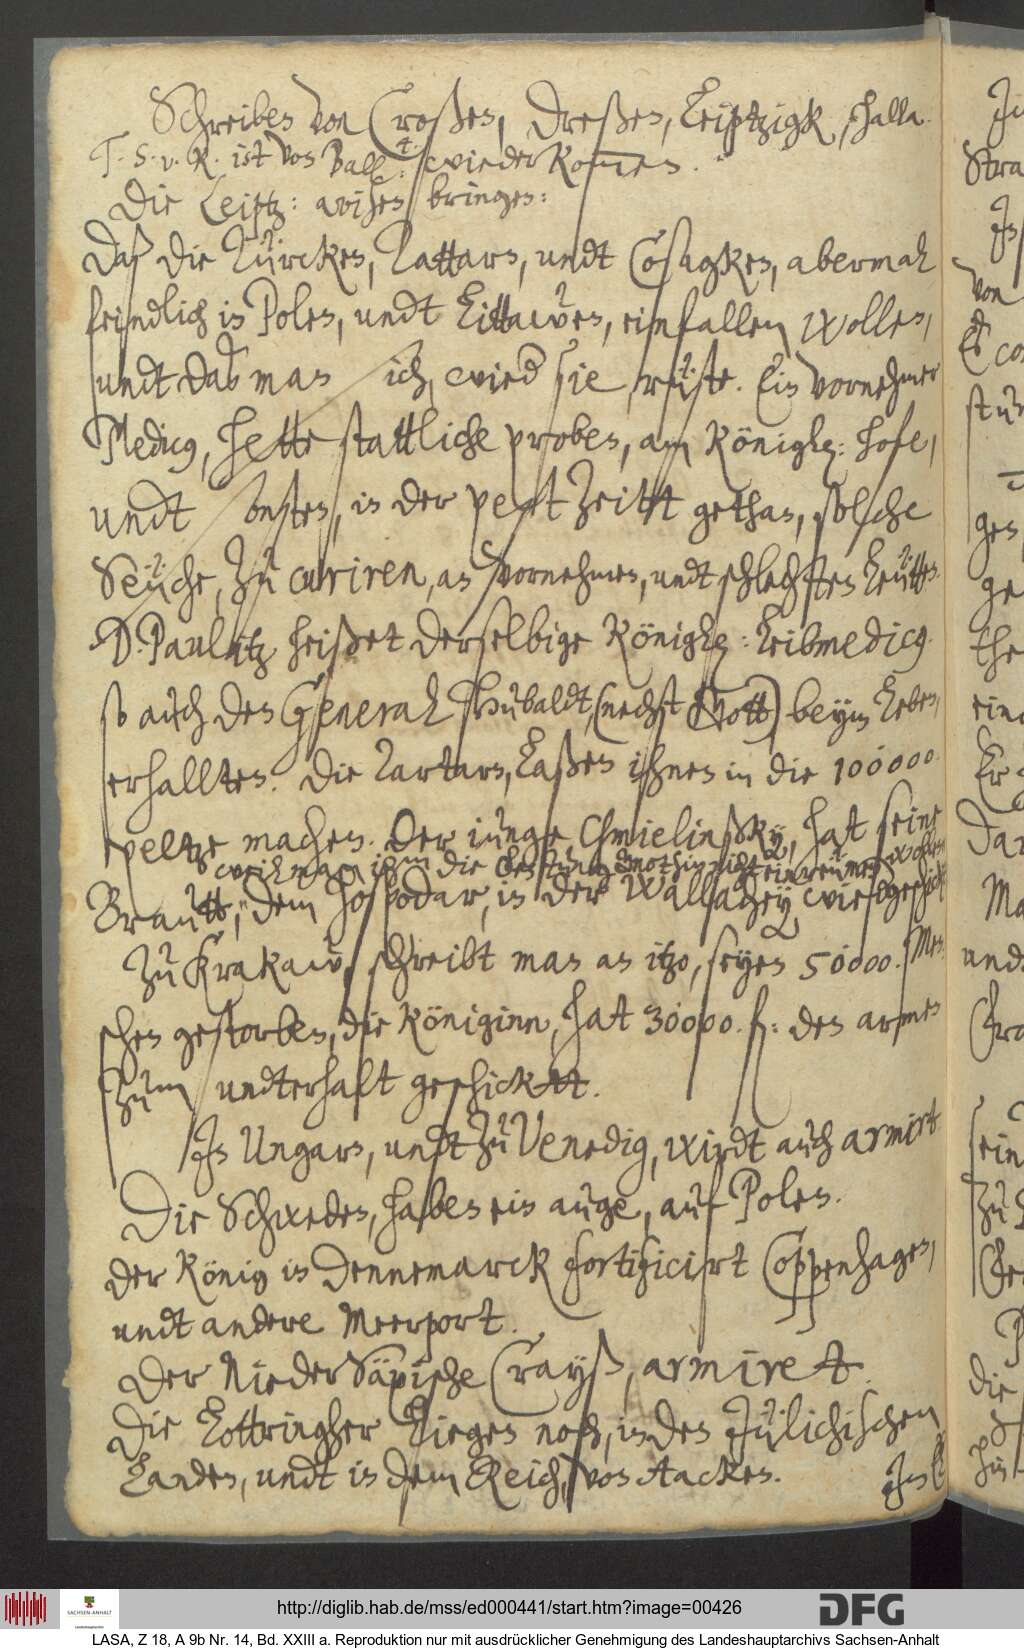 Schreiben von Croßen, Dreßen, Leiptzigk, Halla.
T. S. v. R. ist von Ball: wieder kommen.
Die Leiptz: avisen bringen:
Daß die Türcken, Tattarn, undt Cosagken, abermal
feindlich in Polen, undt Littawen, einfallen wollen,
undt das man sich, wied sie rüste. Ein vornehmer
Medicus, hette stattliche proben, am Königlichen: hofe,
undt sonsten, in der pest Zeitt gethan, solche
Seüche, zu curiren, an vornehmen, undt schlechten Leütten.
D. Paulitz heißet derselbige Königliche: Leibmedicus.
so auch den General Thubaldt, (nechst Gott) beym Leben,
erhallten. Die Tartarn, Laßen ihnen in die 100000
peltze machen. Der iunge, Chmielinßky, hat seine
weil man ihm die nicht einreümen wollen
Brautt, dem Hospodar, in der Wallachey, wiedergeschickt
Zu Krakaw, schreibt man an itzo, seyen 50000. Men-
schen gestorben, die Königinn, hat 30000. fl: den armen
zum undterhalt geschicktt.
In Ungarn, undt zu Venedig, wirdt auch armirt
Die Schweden, haben ein auge, auf Polen.
der König in Dennemarck fortificirt Coppenhagen,
undt andere Meerport.
Der NiederSäxische Crayß, armiret.
Die Lottringher Liegen noch, in den Jülichischen
Landen, undt in dem Reich, von Aacken.
http://diglib.hab.de/mss/ed000441/start.htm?image=00426
SACHSEN-ANHALT
DFG
LASA, Z 18, A 9b Nr. 14, Bd. XXIII a. Reproduktion nur mit ausdrücklicher Genehmigung des Landeshauptarchivs Sachsen-Anhalt